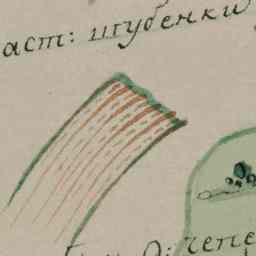 аст: штубенки
о: чепе